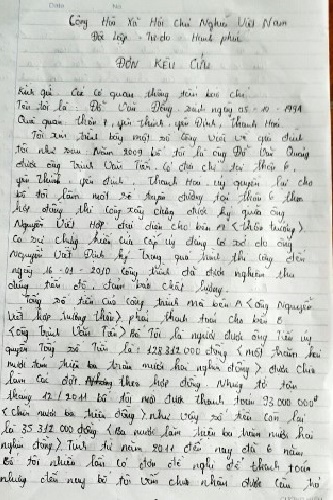 Cộng Hòa Xã Hội Chủ Nghĩa Việt Nam
Độc Lập - Tự do - Hạnh phúc
ĐƠN KÊU CỨU
Kính gửi: Các cơ quan thông tấn báo chí
Tôi tên là: Đỗ Văn Đồng sinh ngày 05-10-1991
Quê quán thôn 8, yên Thịnh, yên Định, Thanh Hóa
Tôi xin trình bày một số công việc về gia đình
Tôi như sau. Năm 2009 bố tôi là ông Đỗ Văn Quang
được ông Trịnh Văn Tiến. có địa chỉ tại thôn 6,
yên Thịnh - yên định, Thanh Hóa ủy quyền lại cho
bố tôi làm một số tuyến đường tại thôn 6 theo
hợp đồng thi công xây dựng được ký giữa ông
Nguyễn Viết Hợp đại diện cho bên A <thôn trưởng>.
Có sự chứng kiến của cấp ủy đảng cơ sở do ông
Nguyễn Viết Định ký trong quá trình thi công đến
ngày 16-01-2010 công trình đã được nghiệm thu
đúng tiến độ, đảm bảo chất lượng.
Tổng số tiền của công trình mà bên A <ông Nguyễn
Viết hợp trưởng thôn> phải thanh toán cho bên B
<ông Trịnh Văn Tiến> Bố Tôi là người được ông Tiến ủy
quyền Tổng số Tiền là: 128.312.000 đồng <một trăm hai
mươi tám triệu ba trăm mười hai nghìn đồng> được chia
làm các đợt theo hợp đồng. Nhưng từ tới
tháng 12/2011 bố tôi mới được thanh toán 93.000.000đ
<chín mươi ba triệu đồng> như vậy số tiền còn lại
là 35.312.000 đồng <Ba mươi lăm triệu ba trăm mười hai
nghìn đồng> Tính từ năm 2011 đến nay đã 6 năm
Bố tôi nhiều lần có đơn đề nghị để thanh toán
nhưng đến nay bố tôi vẫn chưa nhận được câu trả